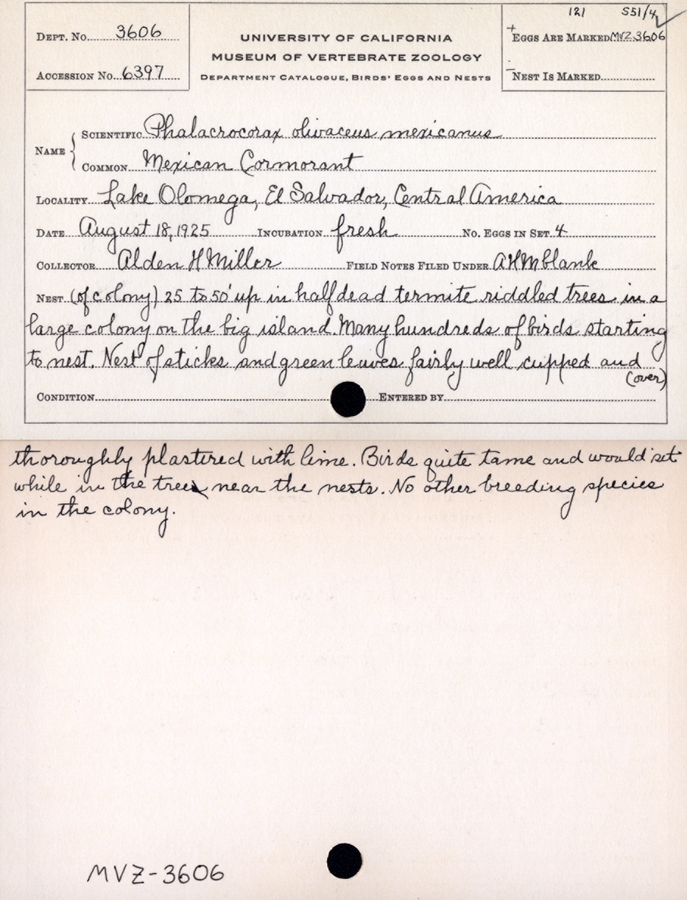 121 551/4
DEPT. No. 3606
UNIVERSITY OF CALIFORNIA
+ EGGS ARE MARKED MVZ 3606
MUSEUM OF VERTEBRATE ZOOLOGY
ACCESSION No. 6397
DEPARTMENT CATALOGUE, BIRDS' EGGS AND NESTS
- NEST IS MARKED
NAME { SCIENTIFIC Phalacrocorax olivaceus mexicanus
COMMON Mexican Cormorant
LOCALITY Lake Olomega, El Salvador, Central America
DATE August 18, 1925 INCUBATION fresh No. EGGS IN SET. 4
COLLECTOR Alden H Miller FIELD NOTES FILED UNDER AHM blank
NEST. (of colony) 25 to 50' up in half dead termite riddled trees in a
large colony on the big island. Many hundreds of birds starting
to nest. Nest of sticks and green leaves fairly well cupped and
(over)
CONDITION ENTERED BY
thoroughly plastired with lime. Birds quite tame and would set
while in the tree near the nests. No other breeding species
in the colony.
MVZ-3606